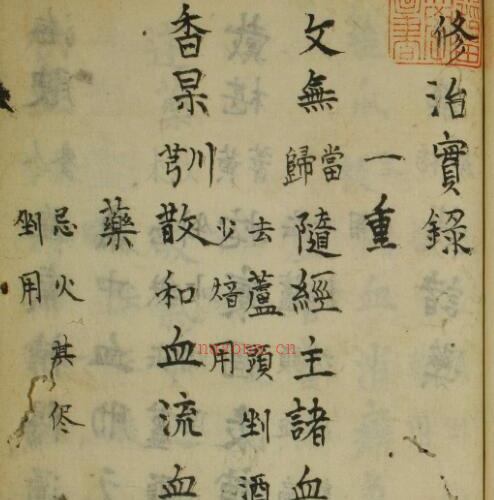 修治實錄
一重
文無 當歸 隨經主諸血
去蘆頭剉酒
少焙用
香杲 川芎 散和血流血
藥
忌火其侭
剉用
nayona.cn